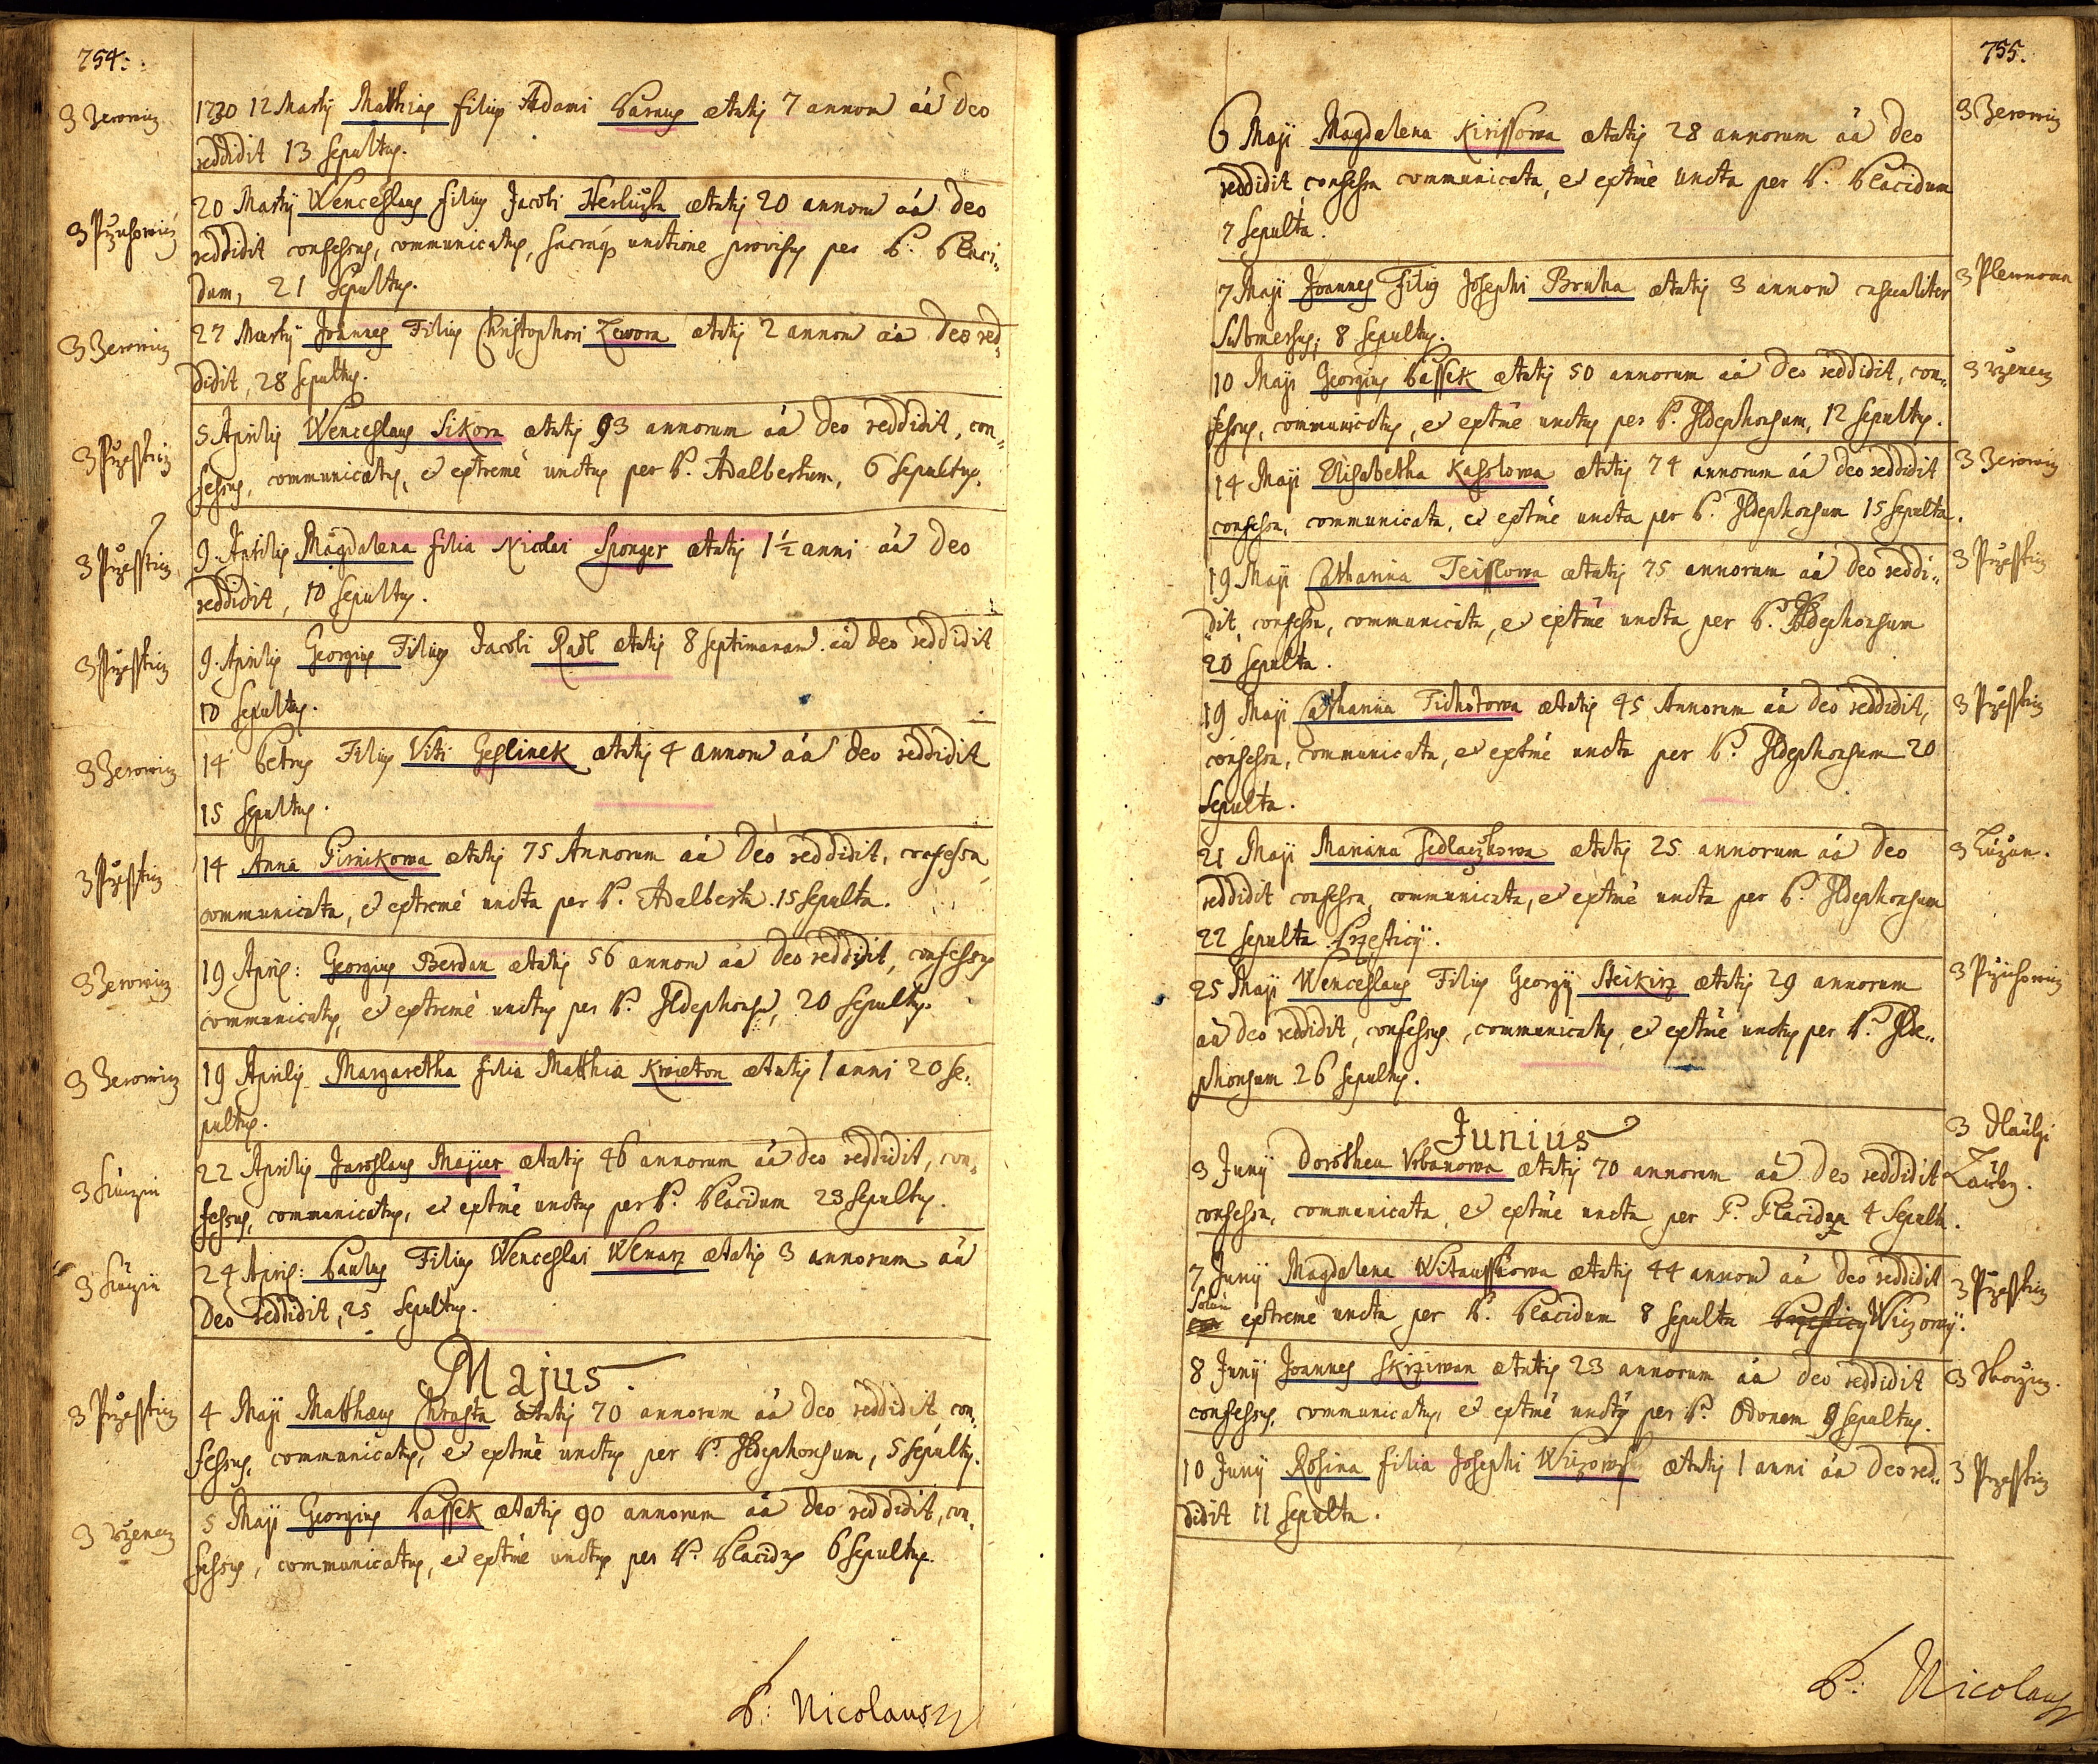 754.
3 Zerowicz
1730 12 Martij Matthias filius Adami Parnus ætatis 7 annorū aā Deo
reddidit 13 sepultus.
3 Przichowicz
20 Martij Wenceslaus filius Jacobi ætatis 20 annorū aā Deo
reddidit confessus, communicatus, sacraq3 unctione provisus per P. Placi„
dum, 21 sepultus.
3 Zerowicz
27 Martij Joannes Filius Christophori Zawora ætatis 2 annorū aā Deo red„
didit, 28 sepultus.
3 Przessticz
5 Aprilis Wenceslaus Sikora ætatis 93 annorum aā Deo reddidit, con„
fessus, communicatus, et extremè unctus per P. Adalbertum, 6 sepultus.
3 Przessticz
9 Aprilis Magdalena filia Nicolai Sponger ætatis 1½ anni aā Deo
reddidit, 10 sepultus.
3 Przessticz
9 Aprilis Georgius Filius Jacobi Radl ætatis 8 septimanarū aā Deo reddidit
10 sepultus.
3 Zerowicz
14 Petrus Filius Viti Geslinek ætatis 4 annorū aā Deo reddidit
15 sepultus.
3 Przessticz
14 Anna ætatis 75 Annorum aā Deo reddidit, confessa
communicata, et extremè uncta per P. Adalbertū. 15 sepulta.
3 Zerowicz
19 Apris: Georgius Berdan ætatis 56 annorū aā Deo reddidit, confessus
communicatus, et extremè unctus per P. Ildephonsū, 20 sepultus.
3 Zerowicz
19 Aprilis Margaretha filia Matthiæ Kwieton ætatis 1 anni 20 se„
pultus.
22 Aprilis Jaroslaus Majier ætatis 46 annorum aā Deo reddidit, con„
fessus, communicatus, et extmè unctus per P. Placidum 23 sepultus.
24 Apris: Paulus Filius Wenceslai Wlnarz ætatis 3 annorum aā
Deo reddidit, 25 sepultus.
Majus.
3 Przessticz
4 Maji Matthæus Chrasta ætatis 70 annorum aā Deo reddidit, con„
fessus, communicatus, et extmè unctus per P. Ildephonsum, 5 sepultus.
3 Wzenez
5 Maji Georgius Passek ætatis 90 annorum aā Deo reddidit, con„
fessus, communicatus, et extmè unctus per P. Placidū 6 sepultus.
P: Nicolaus
755.
3 Zerowicz
6 Maji Magdalena Kirissowa ætatis 28 annorum aā Deo
reddidit, confessa communicata, et extmè uncta per P. Placidum
7 sepulta.
3 Plewnowa
7 Maji Joannes Filius Josephi Bruha ætatis 3 annorū casualiter
submersus, 8 sepultus.
3 Wzenez
10 Maji Georgius Passek ætatis 50 annorum aā Deo reddidit, con„
fessus, communicatus, et extmè unctus per P. Ildephonsum, 12 sepultus.
3 Zerowicz
14 Maji Elisabetha Kasslowa ætatis 74 annorum aā Deo reddidit
confessa, communicata, et extmè uncta per P. Ildephonsum 15 sepulta.
3 Przessticz
19 Maji Catharina Teisslowa ætatis 75 annorum aā Deo reddi„
dit, confessa, communicata, et extmè uncta per P. Ildephonsum
20 sepulta.
3 Przessticz
19 Maji Catharina Tichotowa ætatis 45 Annorum aā Deo reddidit,
confessa, communicata, et extmè uncta per P. Ildephonsum 20
sepulta.
3 Luzan.
21 Maji Mariana Sedlaczkowa ætatis 25 annorum aā Deo
reddidit confessa, communicata, et extmè uncta per P. Ildephonsum
22 sepulta Przesticij.
3 Przichowicz
25 Maji Wenceslaus Filius Georgij Steikirz ætatis 29 annorum
aā Deo reddidit, confessus, communicatus, et extmè unctus per P. Ilde„
phonsum 26 sepultus.
Junius
3 Juny Dorothea Urbanowa ætatis 70 annorum aā Deo reddidit
confessa, communicata, et extmè uncta per P. Placidum 4 sepulta.
3 Przessticz
7 Juny Magdalena Witausskowa ætatis 44 annorū aā Deo reddidit
Solum extreme uncta per P. Placidum 8 sepulta Przesticij Wiczowÿ.
8 Juny Joannes Skrziwan ætatis 23 annorum aā Deo reddidit
confessus, communicatus, et extmè unctus per P. Odonem 9 sepultus.
3 Przessticz
10 Juny Rosina filia Josephi ætatis 1 anni aā Deo red„
didit 11 sepulta.
P: Nicolaus